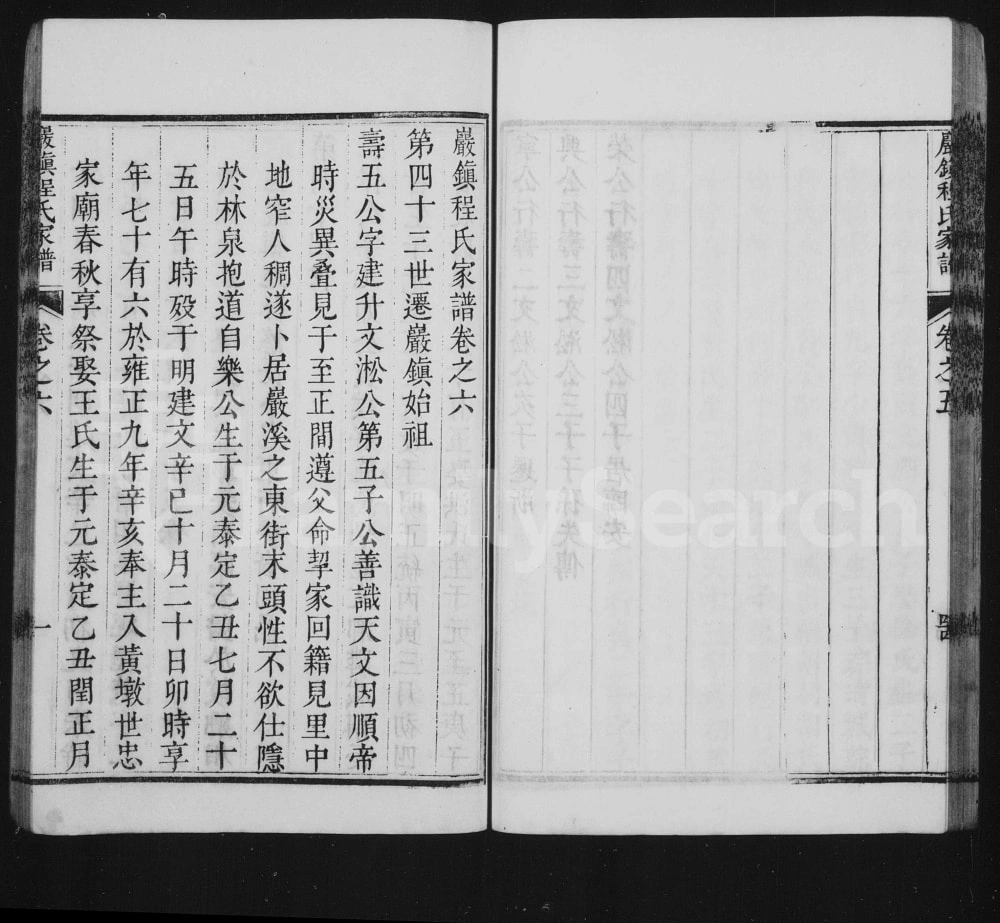 巖鎮程氏家譜
卷之五
巖鎮程氏家譜卷之六
第四十三世遷巖鎮始祖
壽五公字建升文淞公第五子公善識天文因順帝
時災異叠見于至正間遵父命挈家回籍見里中
地窄人稠遂卜居巖溪之東街末頭性不欲仕隱
於林泉抱道自樂公生于元泰定乙丑七月二十
五日午時殁于明建文辛巳十月二十日卯時享
年七十有六於雍正九年辛亥奉主入黃墩世忠
家廟春秋享祭娶王氏生于元泰定乙丑閏正月
巖鎮程氏家譜
卷之六
一
FamilySearch